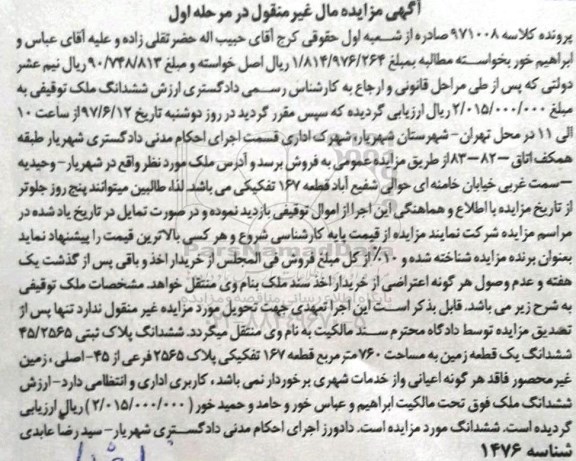 آگهی مزایده مال غیر منقول در مرحله اول
پرونده کلاسه ۹۷۱۰۰۸ صادره از شعبه اول حقوقی کرج آقای حبیب اله حضرتقلی زاده و علیه آقای عباس و
ابراهیم خور بخواسته مطالبه بمبلغ ۱/۸۱۴/۹۷۶/۲۶۴ ریال اصل خواسته و مبلغ ۹۰/۷۴۸/۸۱۳ ریال نیم عشر
دولتی که پس از طی مراحل قانونی و ارجاع به کارشناس رسمی دادگستری ارزش ششدانگ ملک توقیفی به
مبلغ ۲/۰۱۵/۰۰۰/۰۰۰ ریال ارزیابی گردیده که سپس مقرر گردید در روز دوشنبه تاریخ ۹۷/۶/۱۲ از ساعت ۱۰
الی ۱۱ در محل تهران - شهرستان شهریار، شهرک اداری قسمت اجرای احکام مدنی دادگستری شهریار طبقه
همکف اتاق -۸۲-۸۳ از طریق مزایده عمومی به فروش برسد و آدرس ملک مورد نظر واقع در شهریار - وحیدیه
- سمت غربی خیابان خامنه ای حوالی شفیع آباد قطعه ۱۶۷ تفکیکی می باشد. لذا، طالبین میتوانند پنج روز جلوتر
از تاریخ مزایده با اطلاع و هماهنگی این اجرا از اموال توقیفی بازدید نموده و در صورت تمایل در تاریخ یاد شده در
مراسم مزایده شرکت نمایند مزایده از قیمت پایه کارشناسی شروع و هر کسی بالاترین قیمت را پیشنهاد نماید
بعنوان برنده مزایده شناخته شده و ۱۰٪ از کل مبلغ فروش فی المجلس از خریدار اخذ و باقی پس از گذشت یک
هفته و عدم وصول هر گونه اعتراضی از خریدار اخذ سند ملک بنام وی منتقل خواهد. مشخصات ملک توقیفی
به شرح زیر می باشد. قابل بذکر است این اجرا تعهدی جهت تحویل مورد مزایده غیر منقول ندارد تنها پس از
تصدیق مزایده توسط دادگاه محترم سند مالکیت به نام وی منتقل میگردد. ششدانگ پلاک ثبتی ۴۵/۲۵۶۵
ششدانگ یک قطعه زمین به مساحت ۷۶۰ متر مربع قطعه ۱۶۷ تفکیکی پلاک ۲۵۶۵ فرعی از ۴۵-اصلی، زمین
غیر محصور فاقد هر گونه اعیانی و از خدمات شهری برخوردار نمی باشد، کاربری اداری و انتظامی دارد-ارزش
ششدانگ ملک فوق تحت مالکیت ابراهیم و عباس خور و حامد و حمید خور (۲/۰۱۵/۰۰۰/۰۰۰) ریال ارزیابی
گردیده است. ششدانگ مورد مزایده است. دادورز اجرای احکام مدنی دادگستری شهریار - سید رضا عابدی
شناسه ۱۴۷۶